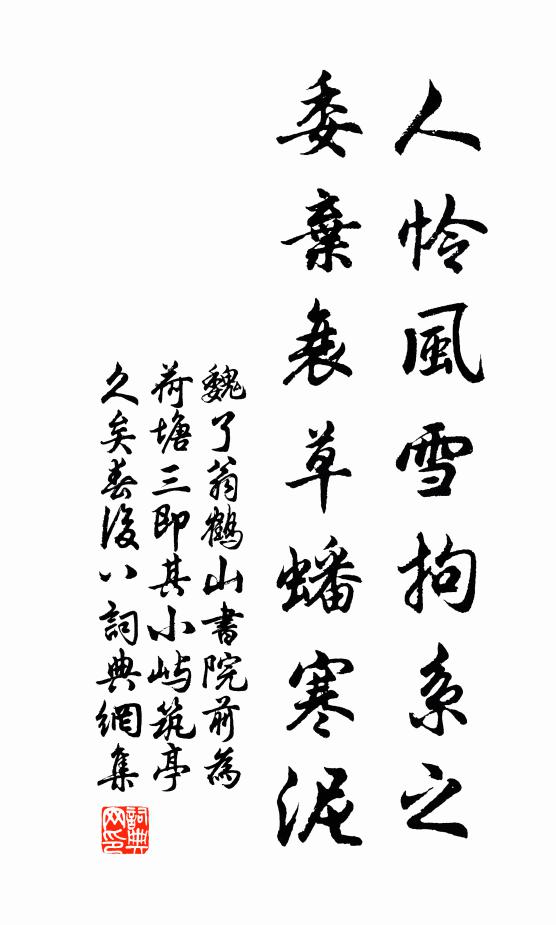 人怜風雪拘系之
委棄衰草蟠寒泥
魏了翁鶴山書院前為
荷塘三即其小屿筑亭
久矣春後八詞典網集
詞典
网印